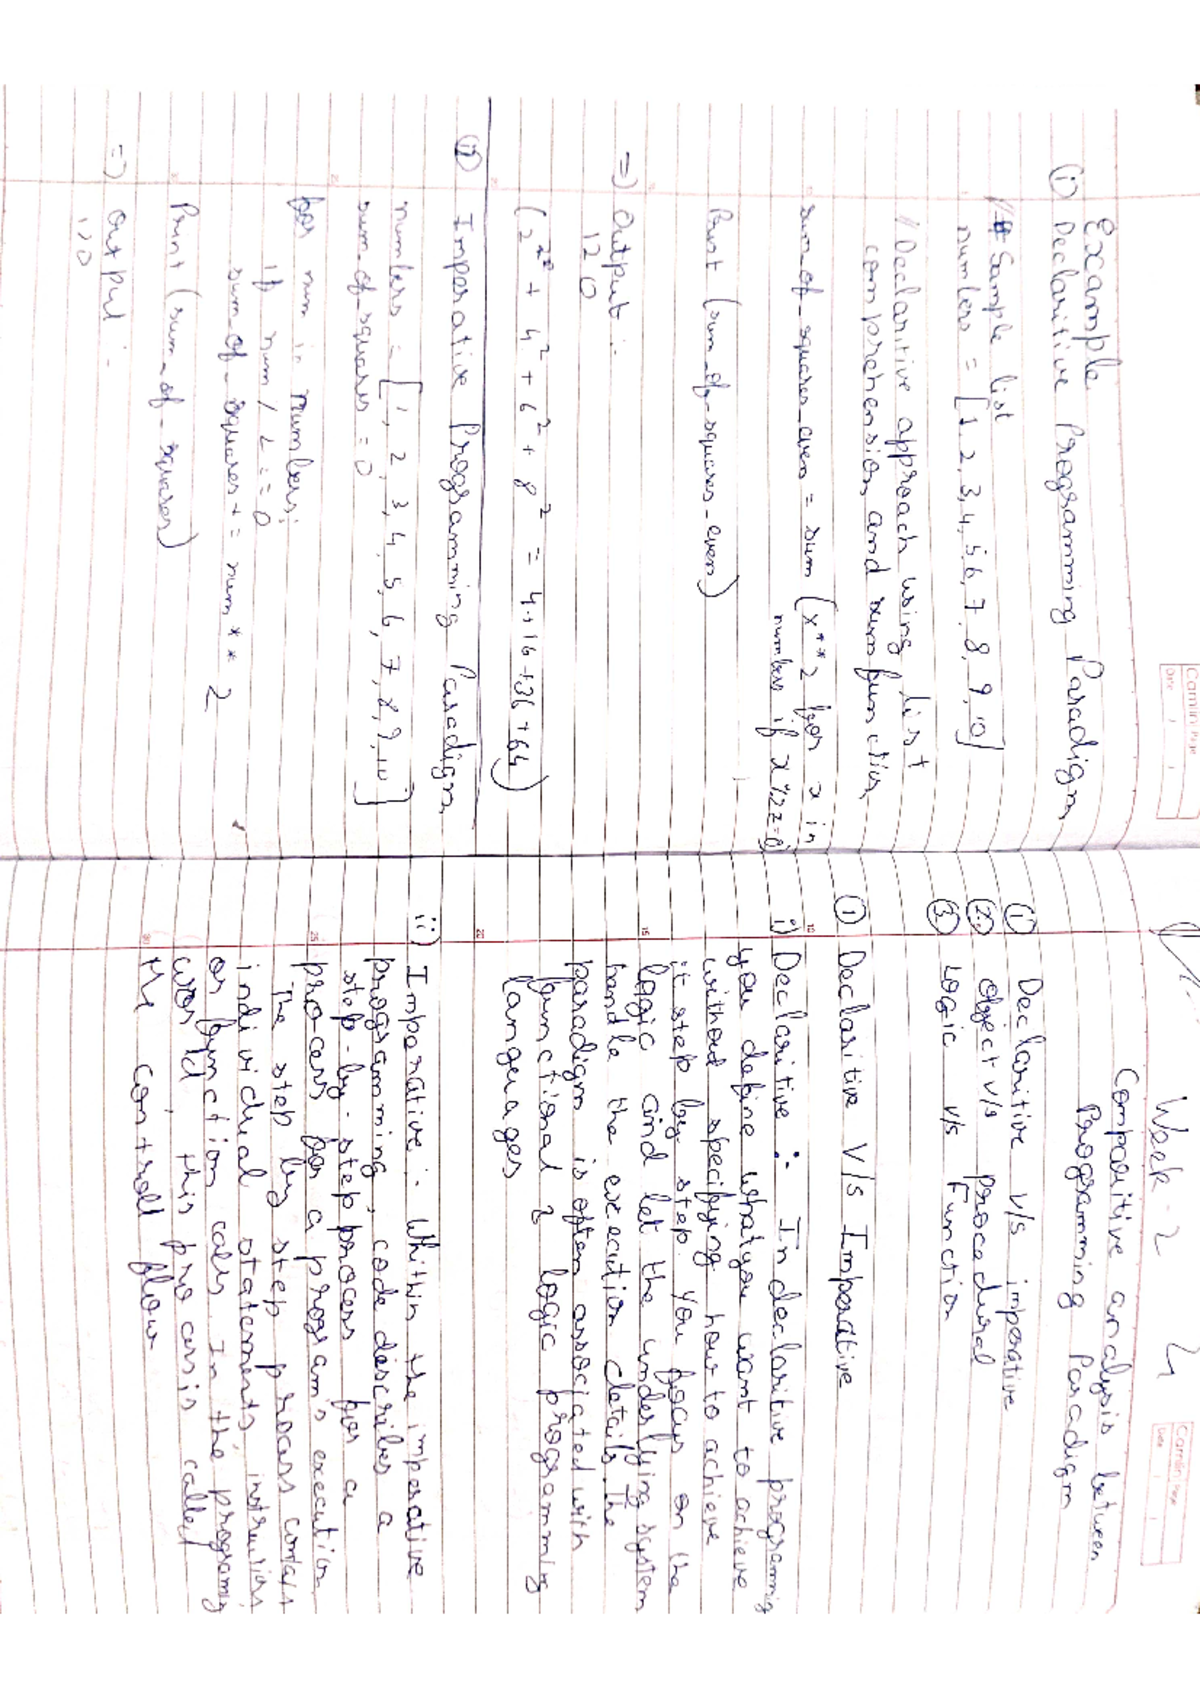 Example
(i) Declaritive Programming Paradigm
// # Sample list
numbers = [1,2,3,4,5,6,7,8,9,10]
// Declaritive approach using list
comprehension and sum function
sum_of_squares_even = sum (x**2 for x in
numbers if x%2==0)
Print (sum_of_squares_even)
=) Output :-
120
(2² + 4² + 6² + 8² = 4+16+36+64)
(ii) Imperative Programming Paradigm
numbers = [1, 2, 3, 4, 5, 6, 7, 8, 9, 10]
sum_of_squares = 0
for num in numbers:
if num / 2 == 0
sum_of_squares += num ** 2
Print (sum_of_squares)
=) Output :-
120
Camlin Page
Date / /
Week - 2
4
Camlin Page
Date / /
Comparitive analysis between
Programming Paradigm
① Declaritive v/s imperative
② Object v/s procedural
③ Logic v/s Function
① Declaritive V/s Imperative
i) Declaritive :- In declaritive programming
you define what you want to achieve
without specifying how to achieve
it step by step. You focus on the
logic and let the underlying system
handle the execution details. The
paradigm is often associated with
functional & logic programming
languages
ii) Imperative :- Whithin the imperative
programming, code describes a
step-by-step process for a
process for a program's execution
The step by step process contain
individual statements, instructions
or function calls. In the programming
world, this process is called
the controll flow
10
15
20
25
30